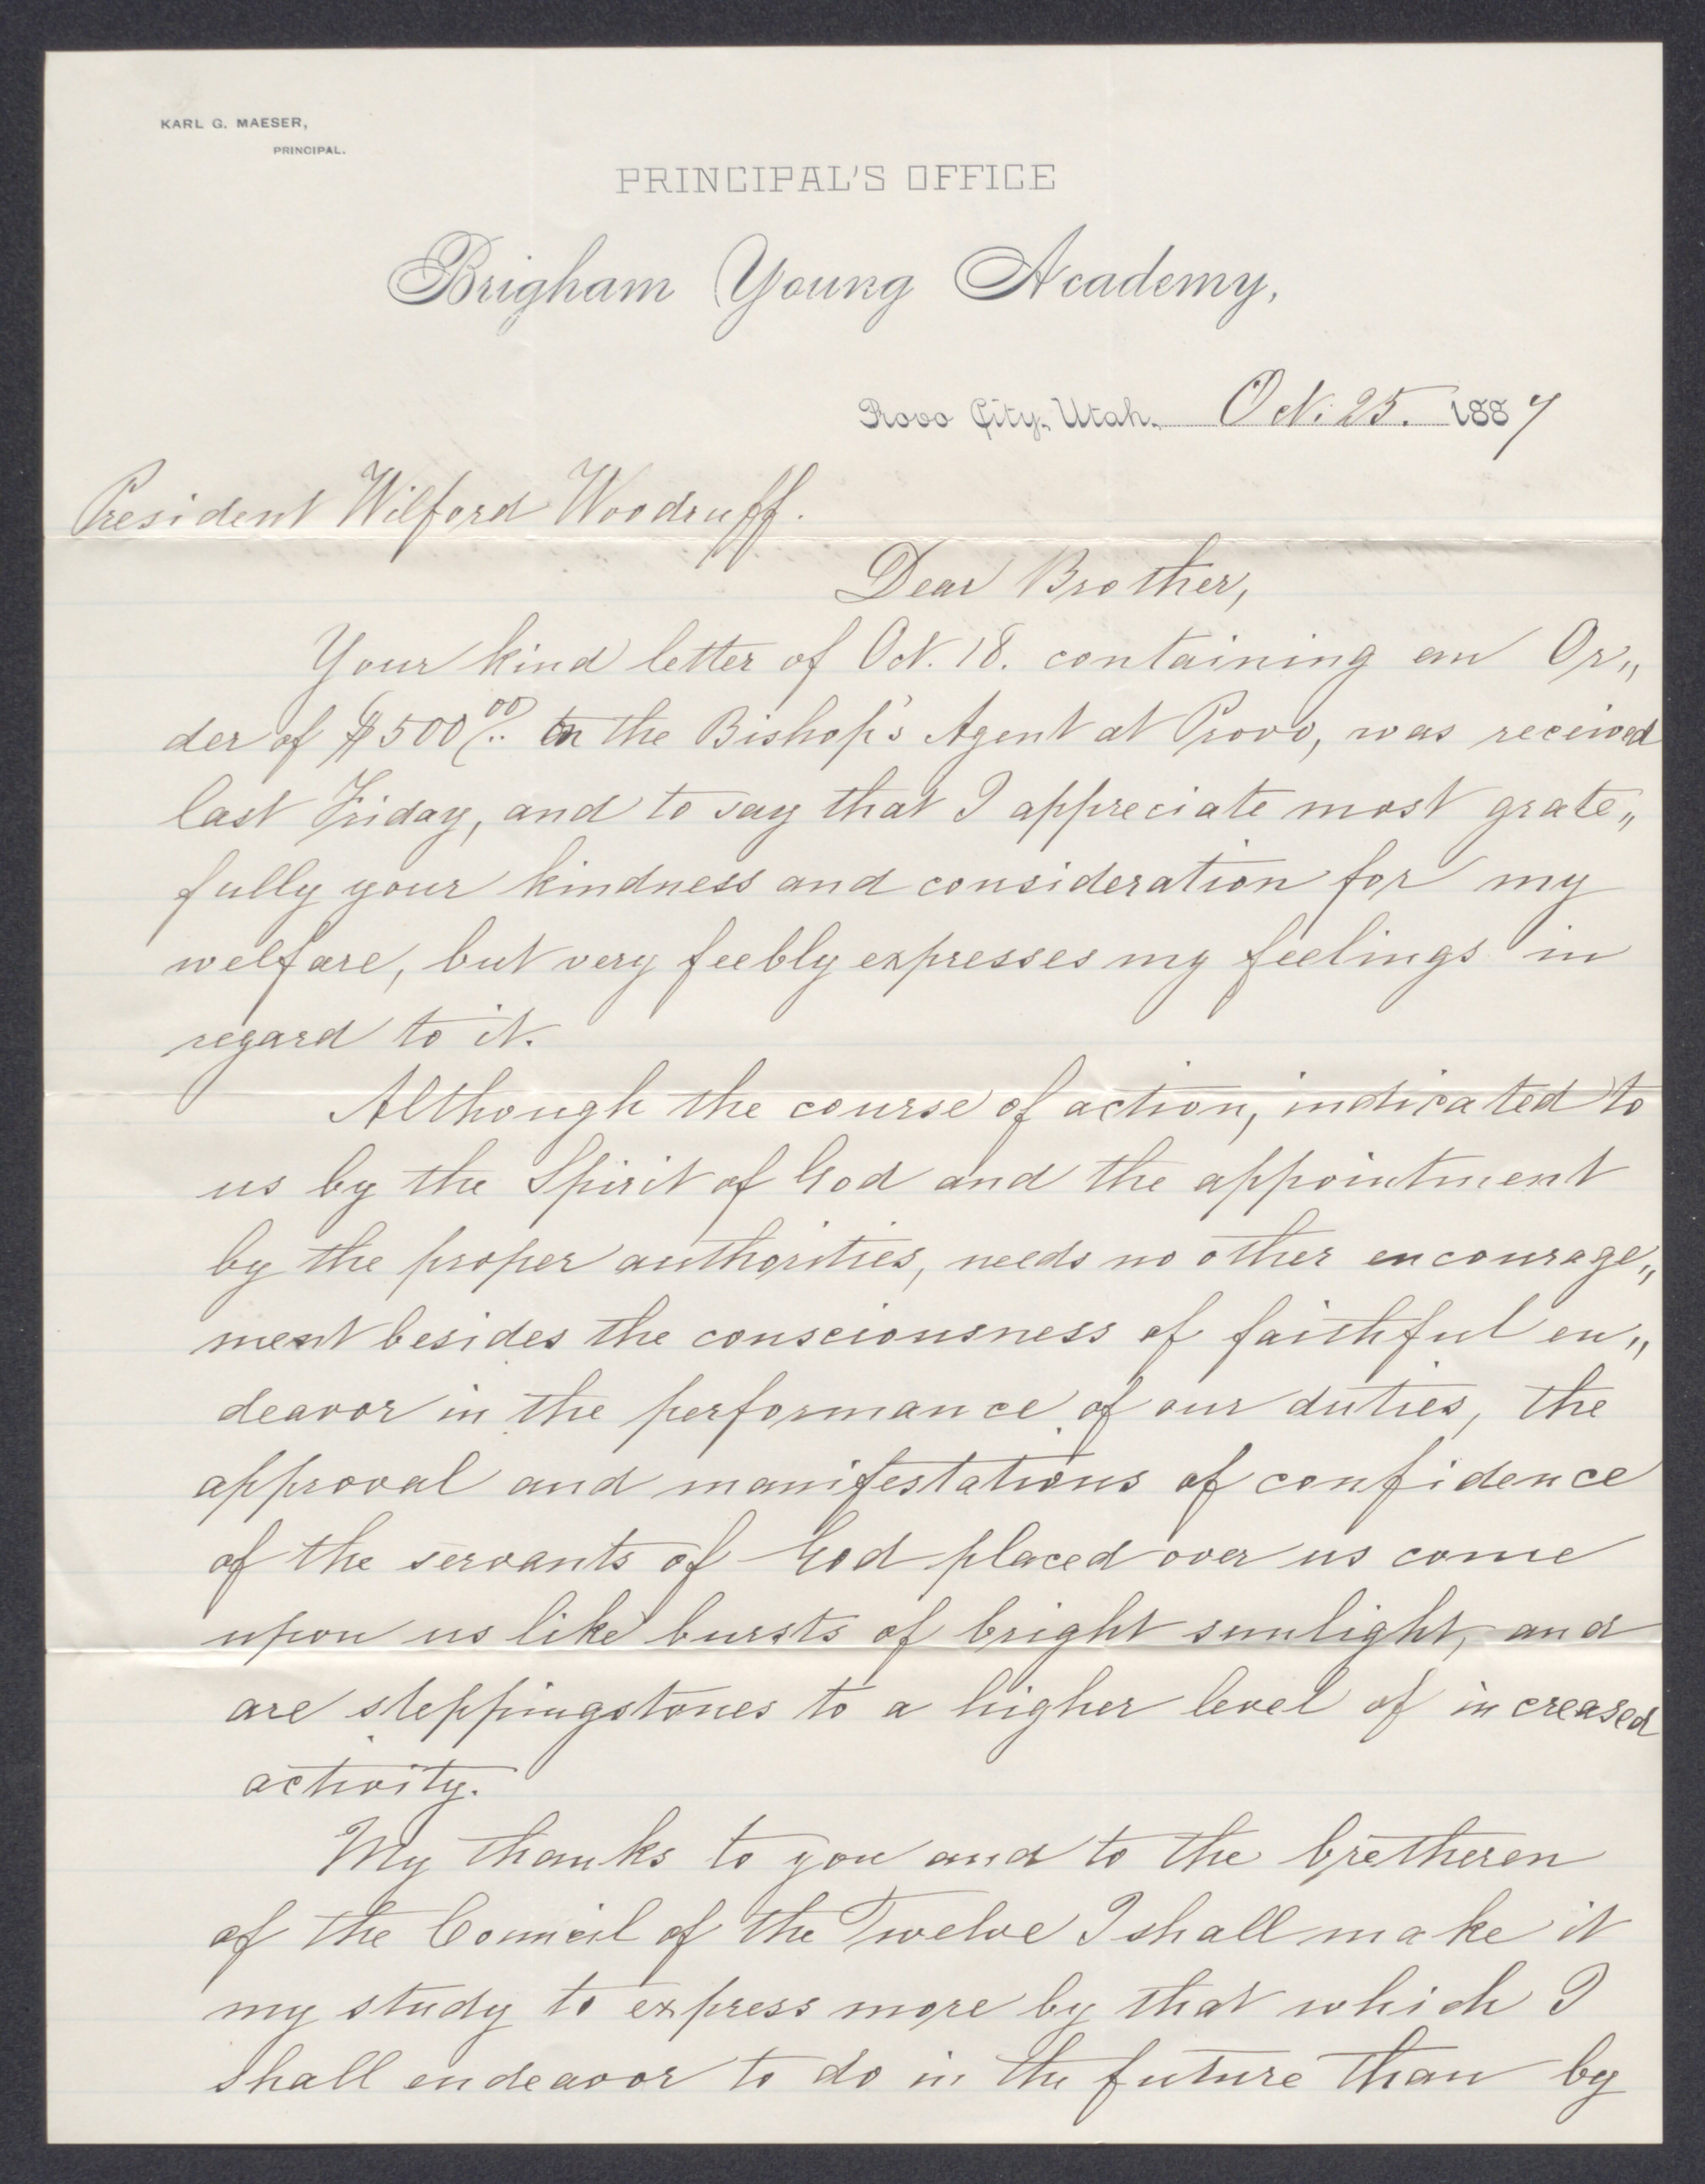 KARL G. MAESER,
PRINCIPAL.
PRINCIPAL'S OFFICE
Brigham Young Academy,
Provo City, Utah. Oct. 25. 1887
President Wilford Woodruff.
Dear Brother,
Your kind letter of Oct. 18. containing an Or„
der of $500.00 on the Bishop's Agent at Provo, was received
last Friday, and to say that I appreciate most grate„
fully your kindness and consideration for my
welfare, but very feebly expresses my feelings in
regard to it.
Although the course of action, indicated to
us by the Spirit of God and the appointment
by the proper authorities, needs no other encourage„
ment besides the consciousness of faithful en„
deavor in the performance of our duties, the
approval and manifestations of confidence
of the servants of God placed over us come
upon us like bursts of bright sunlight, and
are steppingstones to a higher level of increased
activity.
My thanks to you and to the bretheren
of the Council of the Twelve I shall make it
my study to express more by that which I
shall endeavor to do in the future than by